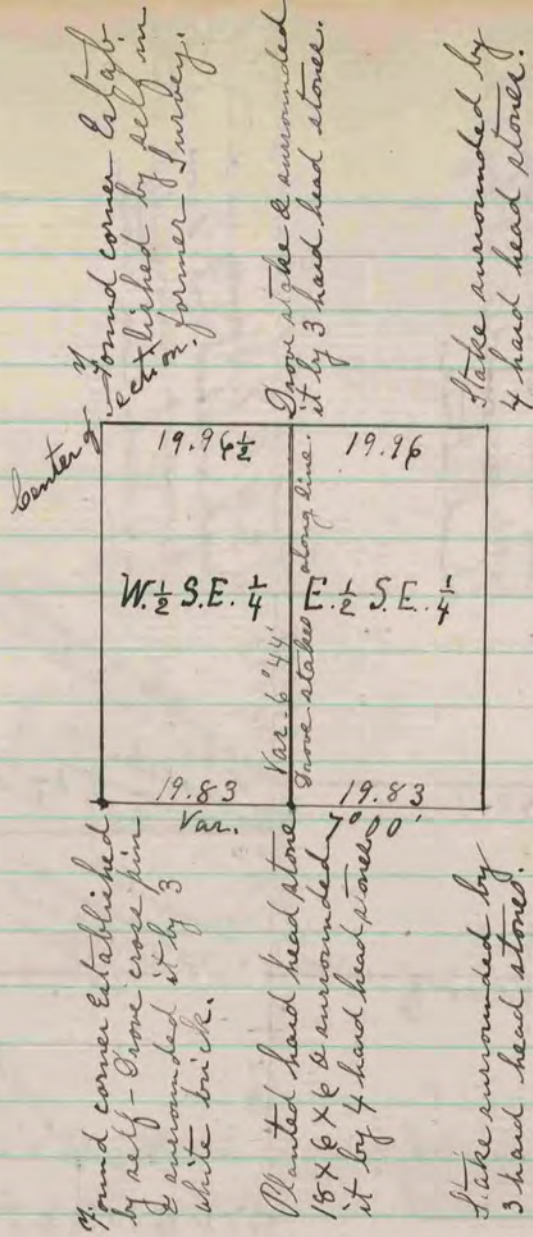 Center of
Section.
Found corner Estab-
lished by self in
former Survey.
Drove stake & surrounded
it by 3 hard head stones.
Stake surrounded by
4 hard head stones.
19.96½
19.96
W.½ S.E.¼
E.½ S.E.¼
Var. 6°44'
Drove stakes along line.
19.83
19.83
Var. 7°00'
Found corner Established
by self - Drove cross pin
& surrounded it by 3
white brick.
Planted hard head stone
18X6X6 & surrounded
it by 4 hard head stones
Stake surrounded by
3 hard head stones.